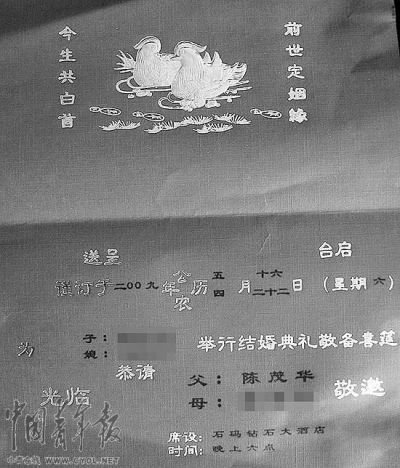 前世定姻缘
今生共白首
送呈 台启
谨订于二00九年公历五月十六日(星期六)
农 四 二十二
为 子: 举行结婚典礼敬备喜筵
娘:
恭请
光临 父:陈茂华 敬邀
母:
席设:石码钻石大酒店
时间:晚上六点
中国青年报
中青在线 WWW.CYOL.NET